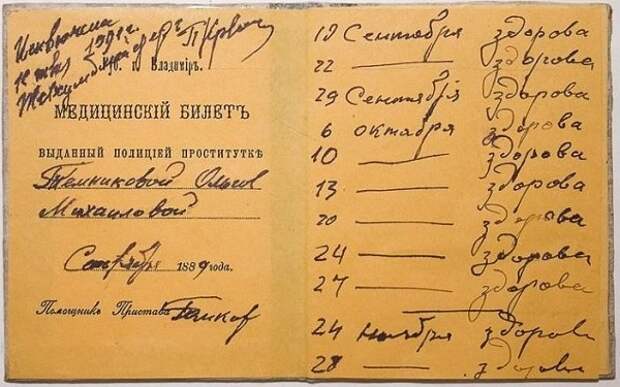 г. Владиміръ.
МЕДИЦИНСКІЙ БИЛЕТЪ
ВЫДАННЫЙ ПОЛИЦІЕЙ ПРОСТИТУТКѢ
Темниковой
Михаиловой
Сентября 1889 года.
Помощникъ Пристава
19 Сентября здорова
22 — здорова
29 Сентября здорова
6 октября здорова
10 — здорова
13 — здорова
20 — здорова
24 — здорова
27 — здорова
24 ноября здорова
28 — здорова